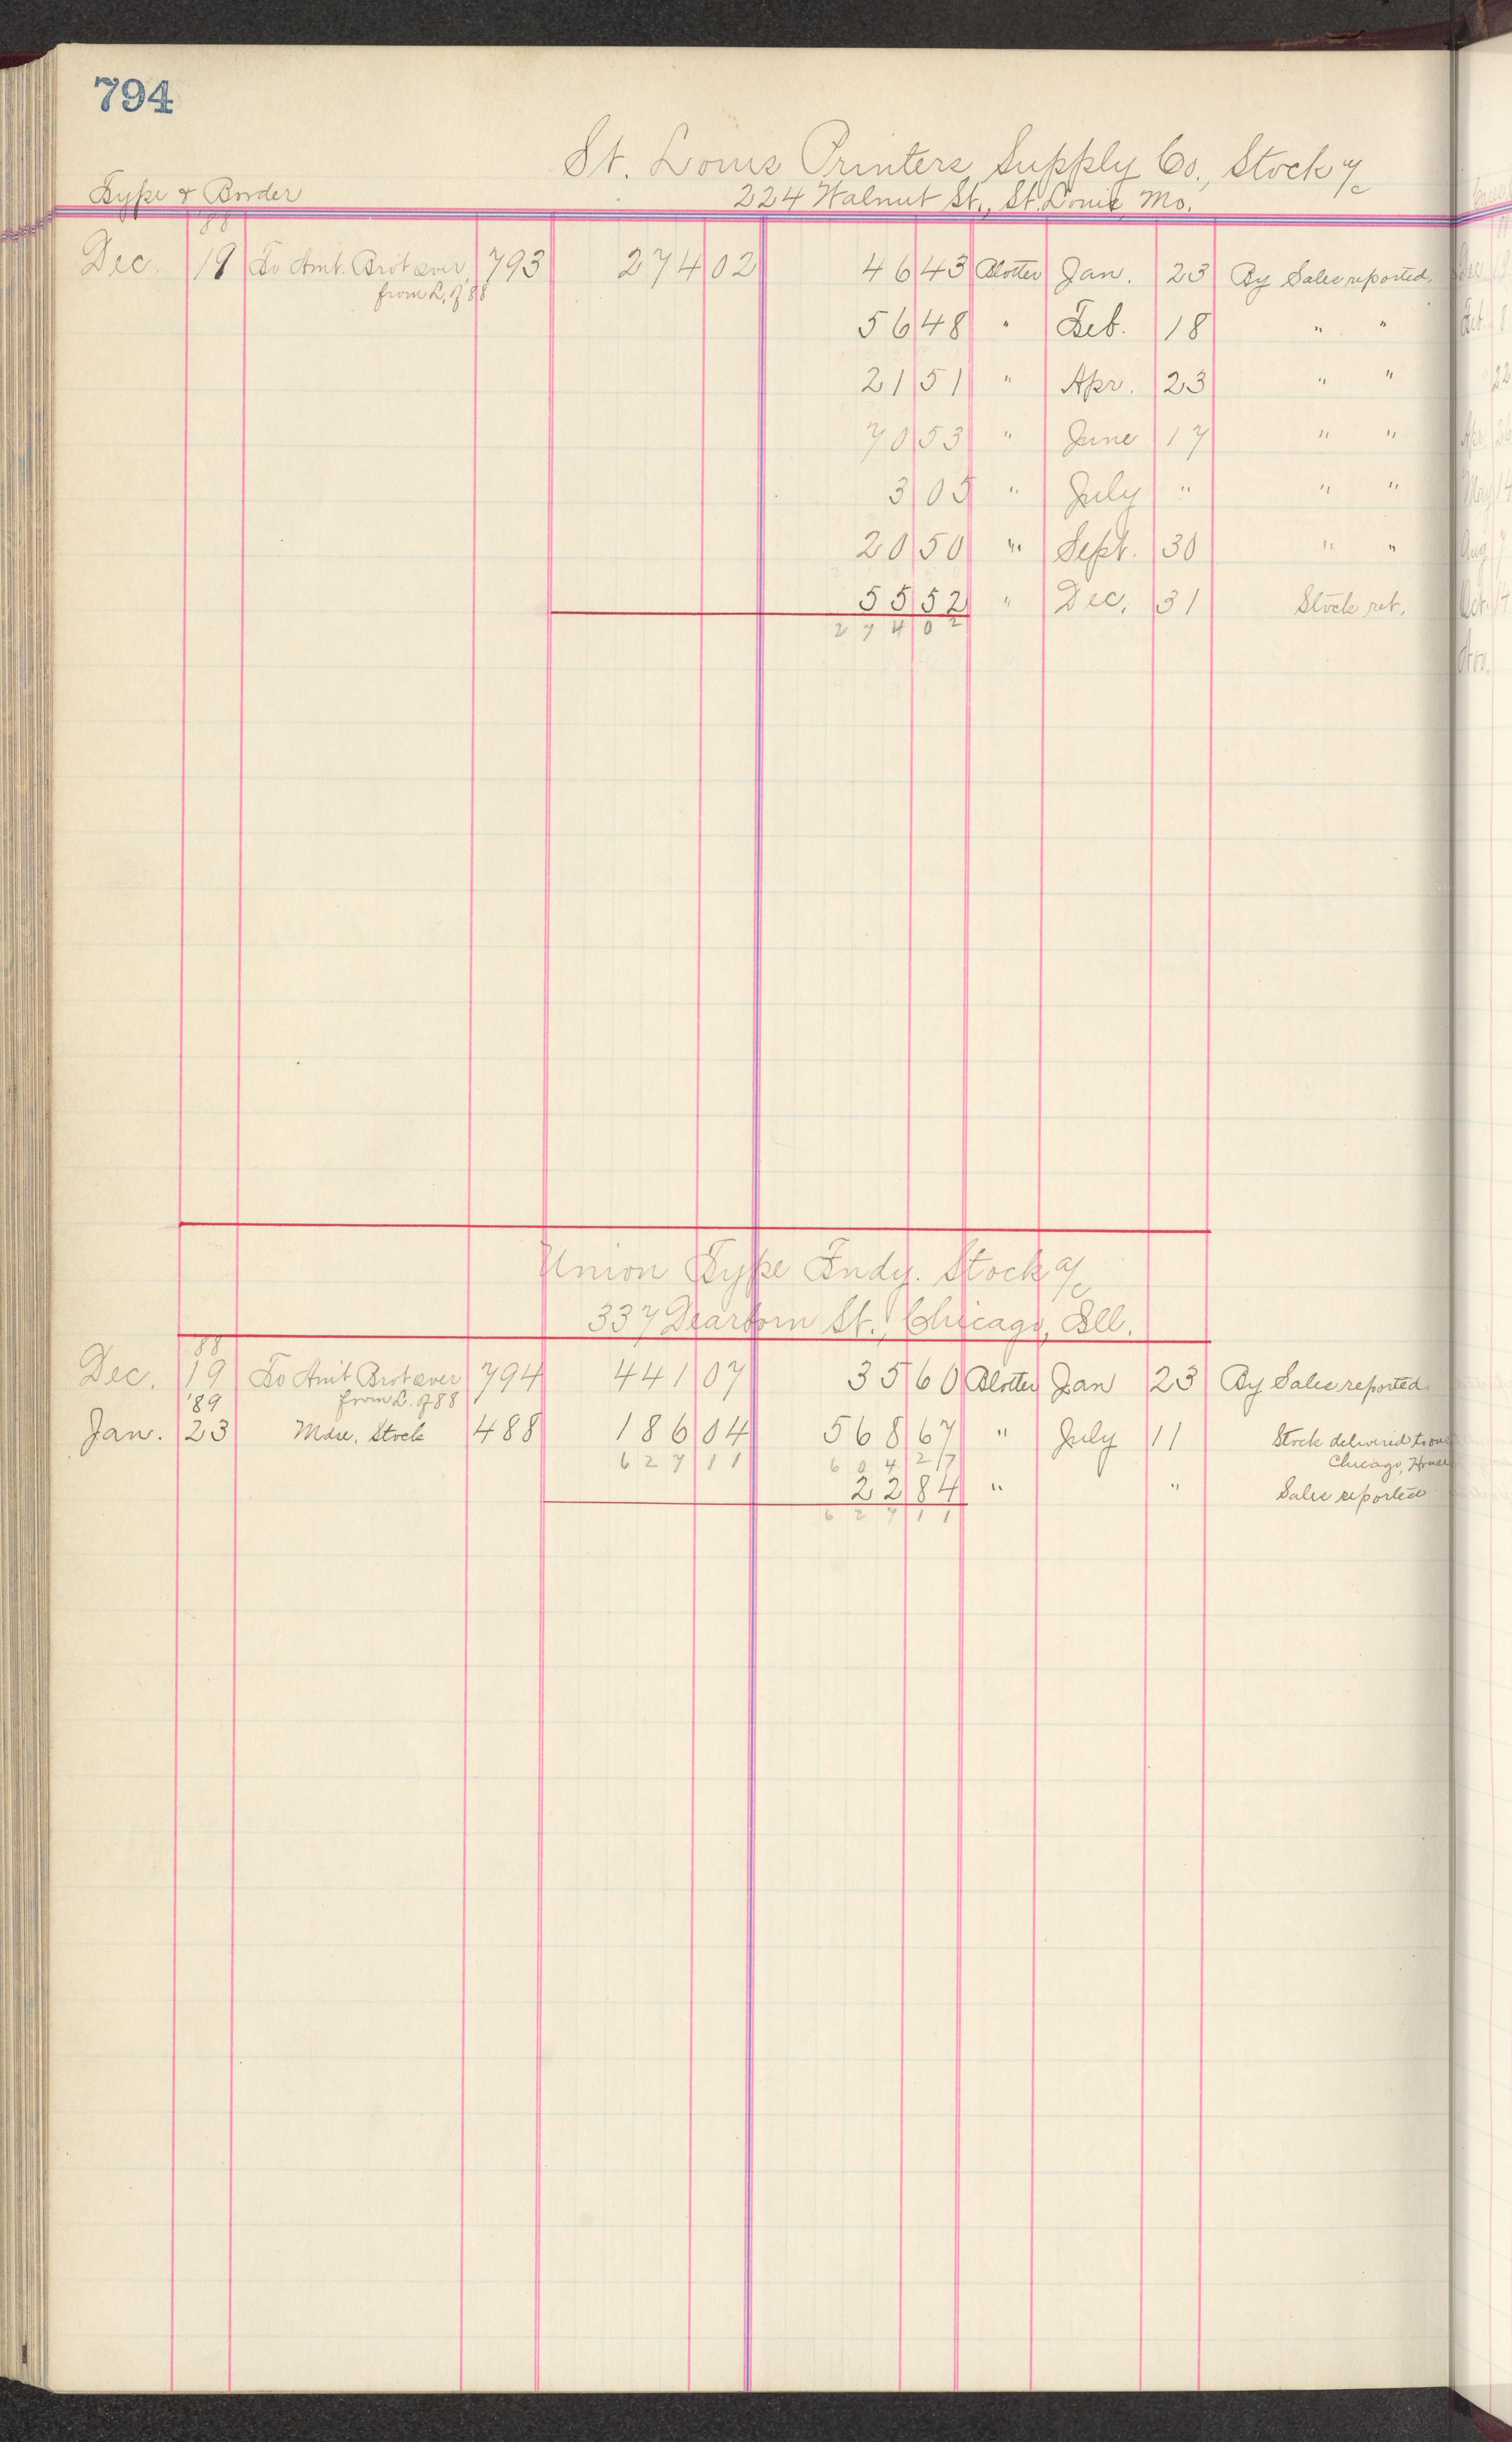 794
St. Louis Printers Supply Co., Stock a/c
Type & Border 224 Walnut St., St. Louis Mo.
88
Dec. 19 To Amt. Brot over 793 274 02 46 43 Blotter Jan. 23 By Sales reported.
from L. of 88
56 48 " Feb. 18 " "
21 51 " Apr. 23 " "
70 53 " June 17 " "
3 05 " July " " "
20 50 " Sept. 30 " "
55 52 " Dec. 31 Stock ret.
274 02
Union Type Fndy. Stock a/c
337 Dearborn St., Chicago, Ill.
88
Dec. 19 To Amt Brot over 794 441 07 35 60 Blotter Jan 23 By Sales reported
'89 from L. of 88
Jan. 23 Mdse. Stock 488 186 04 568 67 " July 11 Stock delivered to our
627 11 604 27 Chicago, House
22 84 " " Sales reported
627 11